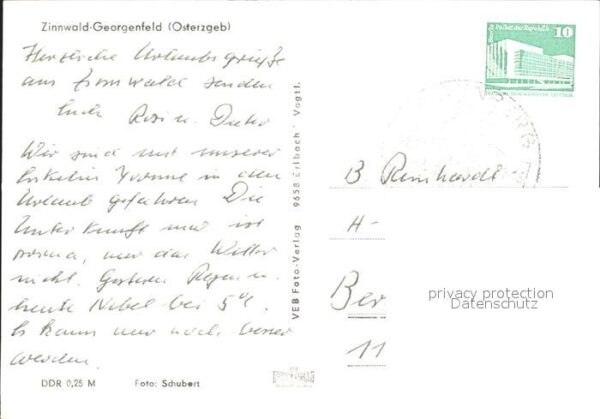 Zinnwald-Georgenfeld (Osterzgeb)
Herzliche Urlaubsgrüße
aus Zinnwald senden
Euch Rosi u. Dieter
Wir sind mit unserer
Enkelin Yvonne in den
Urlaub gefahren. Die
Unterkunft und ist
prima, nur das Wetter
nicht. Gestern Regen u.
heute Nebel bei 5°C.
Es kann nur noch besser
werden.
DDR 0,25 M Foto: Schubert
VEB Foto-Verlag 9658 Erlbach Vogtl.
Palast der Republik
10
B Reinhardt
H-
Ber
11
privacy protection
Datenschutz